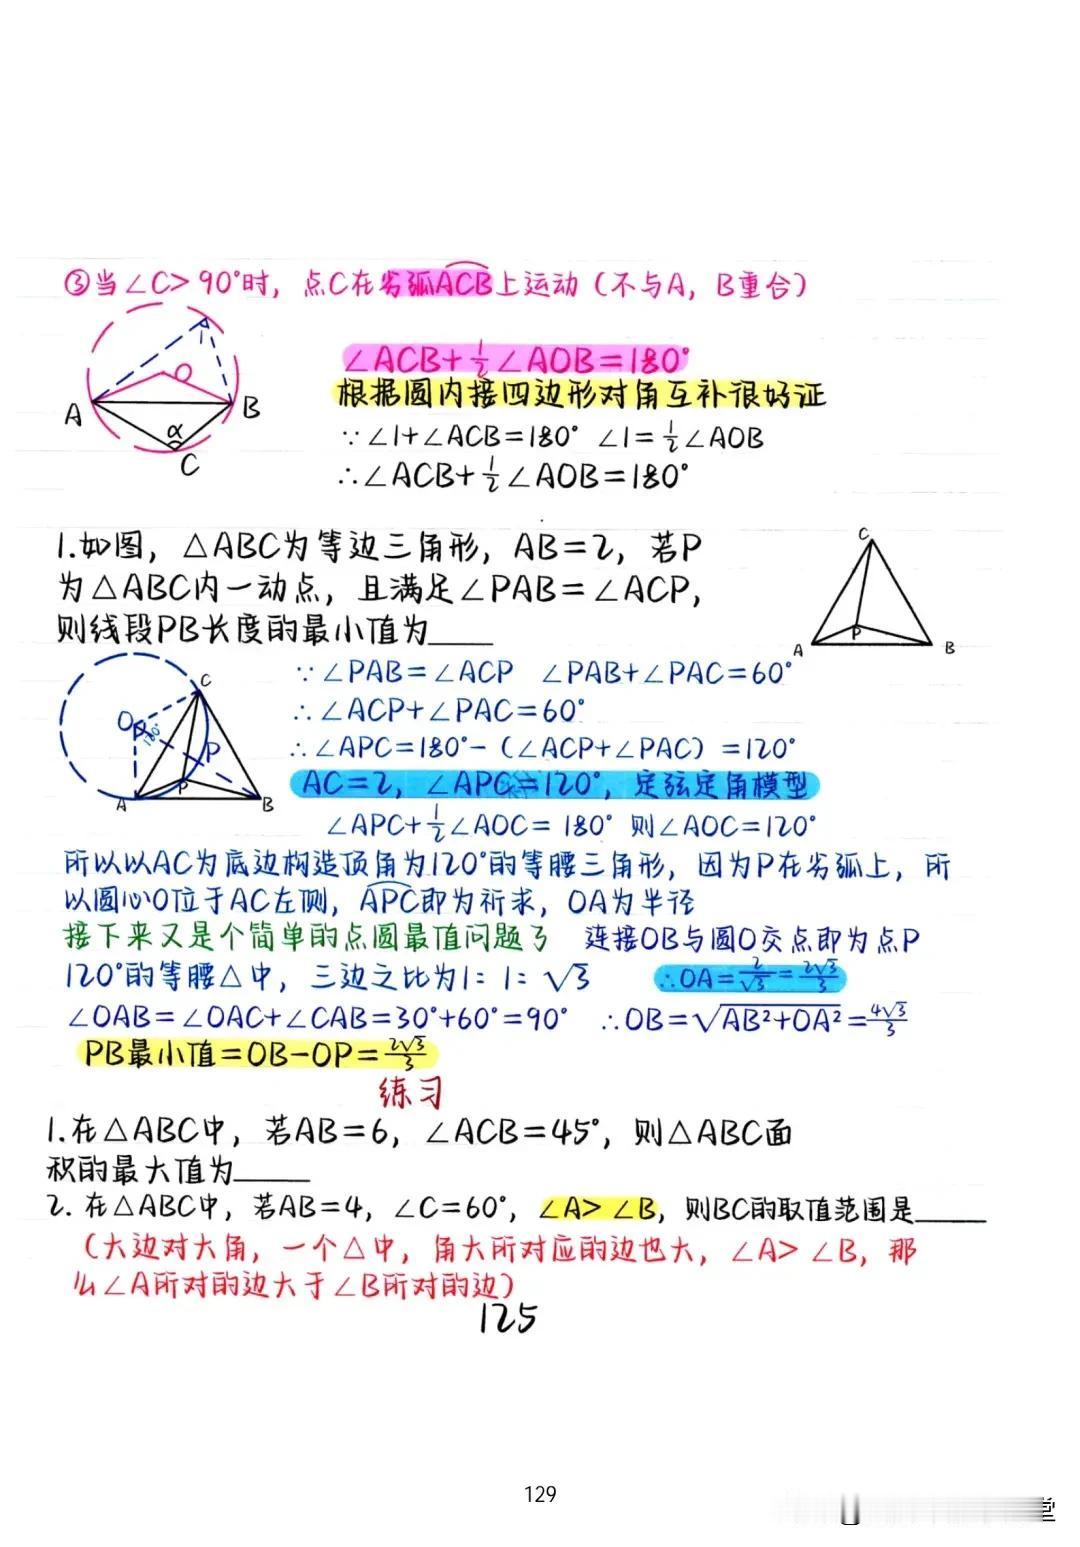 ③当∠C>90°时，点C在劣弧ACB上运动（不与A，B重合）
∠ACB+½∠AOB=180°
根据圆内接四边形对角互补很好证
∵∠1+∠ACB=180° ∠1=½∠AOB
∴∠ACB+½∠AOB=180°
A
B
C
O
α
1
1.如图，△ABC为等边三角形，AB=2，若P
为△ABC内一动点，且满足∠PAB=∠ACP，
则线段PB长度的最小值为____
C
A
P
B
∵∠PAB=∠ACP ∠PAB+∠PAC=60°
∴∠ACP+∠PAC=60°
∴∠APC=180°-（∠ACP+∠PAC）=120°
AC=2，∠APC=120°，定弦定角模型
∠APC+½∠AOC=180° 则∠AOC=120°
C
O
120°
P
A
P
B
所以以AC为底边构造顶角为120°的等腰三角形，因为P在劣弧上，所
以圆心O位于AC左侧，APC即为祈求，OA为半径
接下来又是个简单的点圆最值问题了 连接OB与圆O交点即为点P
120°的等腰△中，三边之比为1：1：√3 ∴OA=2/√3=2√3/3
∠OAB=∠OAC+∠CAB=30°+60°=90° ∴OB=√(AB²+OA²)=4√3/3
PB最小值=OB-OP=2√3/3
练习
1.在△ABC中，若AB=6，∠ACB=45°，则△ABC面
积的最大值为____
2.在△ABC中，若AB=4，∠C=60°，∠A>∠B，则BC的取值范围是____
（大边对大角，一个△中，角大所对应的边也大，∠A>∠B，那
么∠A所对的边大于∠B所对的边）
125
129
堂